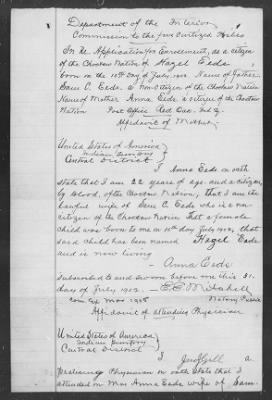 Department of the Interior
Commission to the five Civilized Tribes
In the Application for Enrollment, as a citizen
of the Choctaw Nation of Hazel Eede
born on the 10th day of July, 1902. Name of Father
Sam C. Eede. a Non Citizen of the Choctaw Nation
Name of Mother Anna Eede a citizen of the Choctaw
Nation Post Office Red Oak I.T.
Affidavit of Mother
United States of America
Indian Territory
Central District
I Anna Eede on oath
state that I am 22 years of age and a citizen,
by blood, of the Choctaw Nation, that I am the
lawful wife of Sam C. Eede who is a non
citizen of the Choctaw Nation that a female
child was born to me on 10th day July 1902, that
said child has been named Hazel Eede
and is now living
Anna Eede
subscribed to and sworn before me this 31.
day of July 1902.
Com Ex Mar 1906 Notary Public
Affidavit of attending Physician
United States of America
Indian Territory
Central District
I a
practicing Physician on oath state that I
attended on Mrs Anna Eede wife of Sam